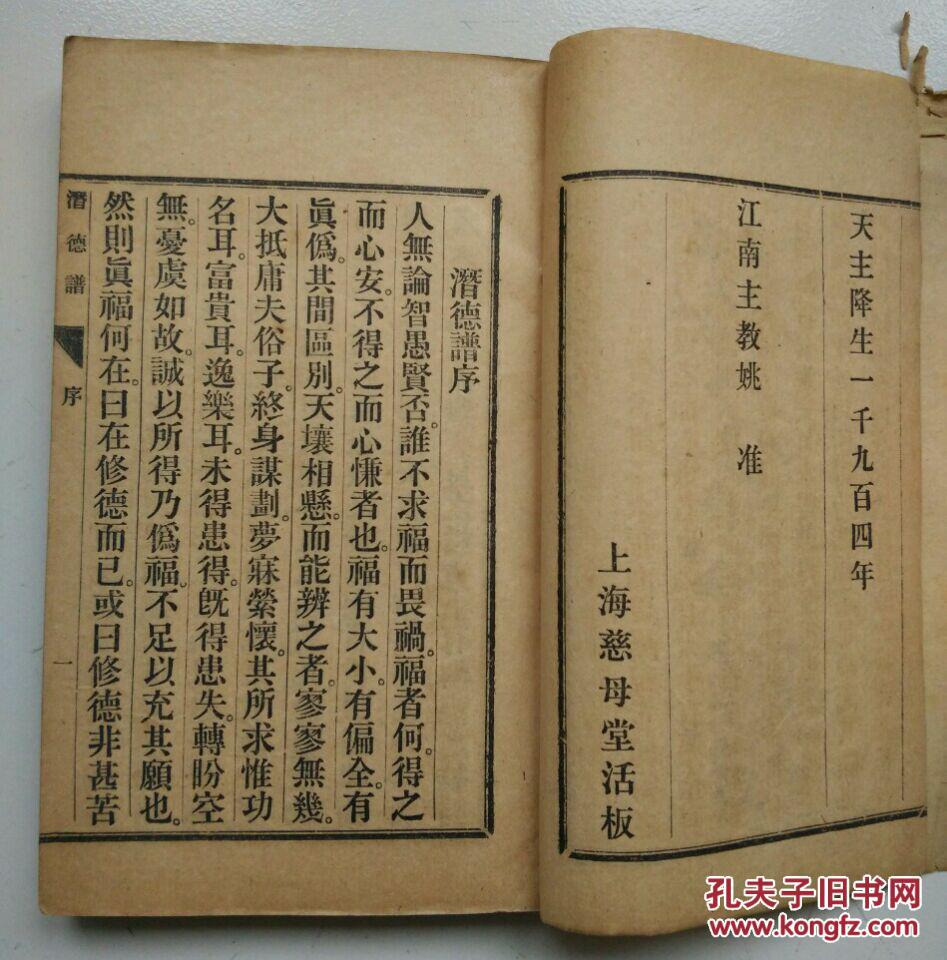 天主降生一千九百四年
江南主教姚 准
上海慈母堂活板
潛德譜序
人無論智愚賢否。誰不求福而畏禍。福者何。得之
而心安。不得之而心慊者也。福有大小。有偏全。有
眞僞。其間區別。天壤相懸。而能辨之者。寥寥無幾。
大抵庸夫俗子。終身謀劃。夢寐縈懷。其所求惟功
名耳。富貴耳。逸樂耳。未得患得。旣得患失。轉盼空
無。憂虞如故。誠以所得乃僞福。不足以充其願也。
然則眞福何在。曰在修德而已。或曰修德非甚苦
潛德譜 序 一
孔夫子旧书网
www.kongfz.com